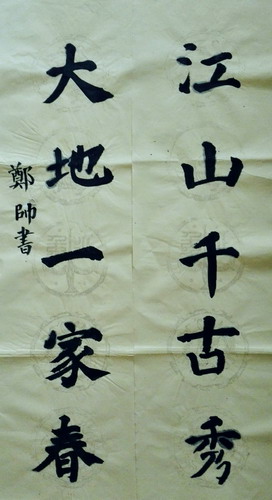 江山千古秀
大地一家春
鄭帥書